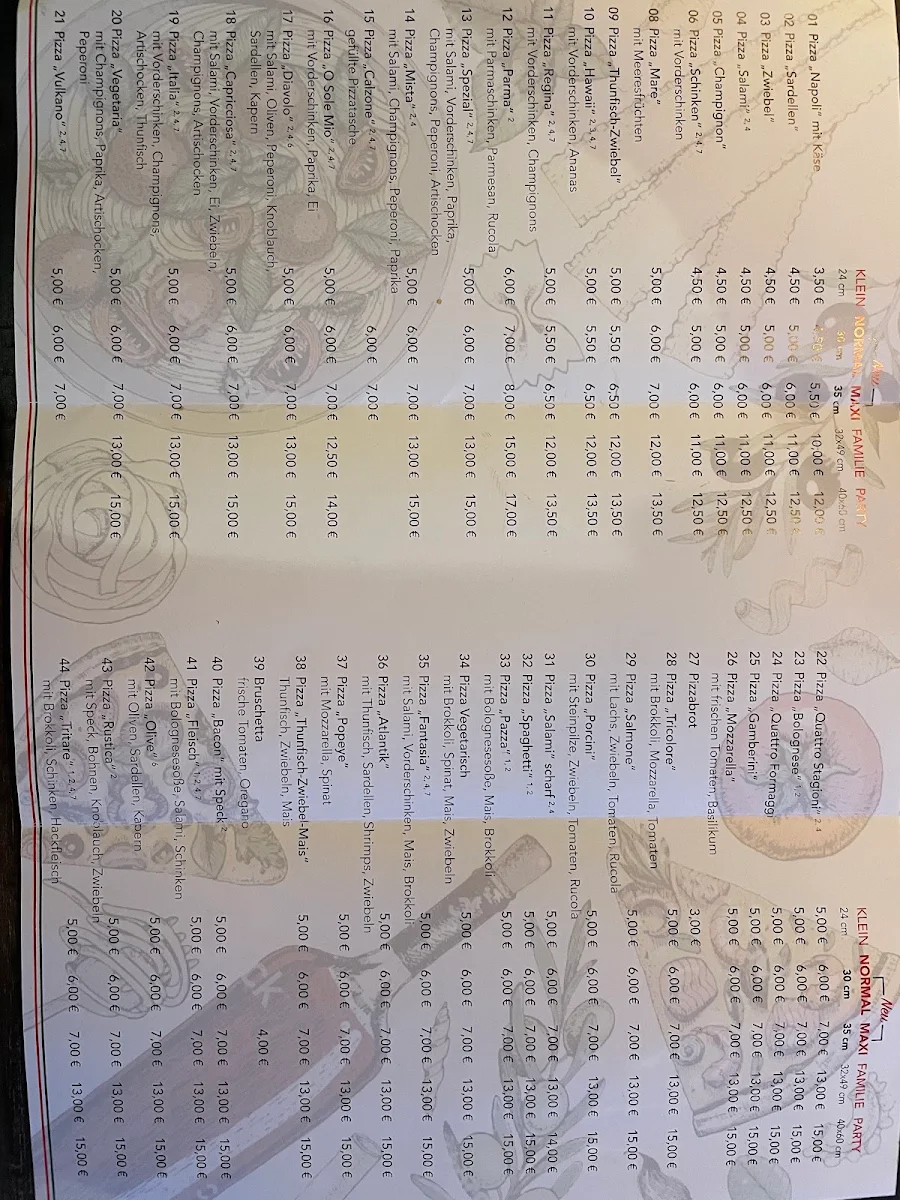 Neu
KLEIN NORMAL MAXI FAMILIE PARTY
24 cm 30 cm 35 cm 32x49 cm 40x60 cm
01 Pizza „Napoli" mit Käse 3,50 € 4,50 € 5,50 € 10,00 € 12,00 €
02 Pizza „Sardellen" 4,50 € 5,00 € 6,00 € 11,00 € 12,50 €
03 Pizza „Zwiebel" 4,50 € 5,00 € 6,00 € 11,00 € 12,50 €
04 Pizza „Salami" 2, 4 4,50 € 5,00 € 6,00 € 11,00 € 12,50 €
05 Pizza „Champignon" 4,50 € 5,00 € 6,00 € 11,00 € 12,50 €
06 Pizza „Schinken" 2, 4,7 4,50 € 5,00 € 6,00 € 11,00 € 12,50 €
mit Vorderschinken
08 Pizza „Mare" 5,00 € 6,00 € 7,00 € 12,00 € 13,50 €
mit Meeresfrüchten
09 Pizza „Thunfisch-Zwiebel" 5,00 € 5,50 € 6,50 € 12,00 € 13,50 €
10 Pizza „Hawaii" 2,3,4,7 5,00 € 5,50 € 6,50 € 12,00 € 13,50 €
mit Vorderschinken, Ananas
11 Pizza „Regina" 2,4,7 5,00 € 5,50 € 6,50 € 12,00 € 13,50 €
mit Vorderschinken, Champignons
12 Pizza „Parma" 2 6,00 € 7,00 € 8,00 € 15,00 € 17,00 €
mit Parmaschinken, Parmesan, Rucola
13 Pizza „Spezial" 2,4,7 5,00 € 6,00 € 7,00 € 13,00 € 15,00 €
mit Salami, Vorderschinken, Paprika,
Champignons, Peperoni, Artischocken
14 Pizza „Mista" 2,4 5,00 € 6,00 € 7,00 € 13,00 € 15,00 €
mit Salami, Champignons, Peperoni, Paprika
15 Pizza „Calzone" 2,4,7 6,00 € 7,00 €
gefüllte Pizzatasche
16 Pizza „O Sole Mio" 2,4,7 5,00 € 6,00 € 7,00 € 12,50 € 14,00 €
mit Vorderschinken, Paprika, Ei
17 Pizza „Diavolo" 2,4,6 5,00 € 6,00 € 7,00 € 13,00 € 15,00 €
mit Salami, Oliven, Peperoni, Knoblauch,
Sardellen, Kapern
18 Pizza „Capricciosa" 2,4,7 5,00 € 6,00 € 7,00 € 13,00 € 15,00 €
mit Salami, Vorderschinken, Ei, Zwiebeln,
Champignons, Artischocken
19 Pizza „Italia" 2,4,7 5,00 € 6,00 € 7,00 € 13,00 € 15,00 €
mit Vorderschinken, Champignons,
Artischocken, Thunfisch
20 Pizza „Vegetaria" 5,00 € 6,00 € 7,00 € 13,00 € 15,00 €
mit Champignons, Paprika, Artischocken,
Peperoni
21 Pizza „Vulkano" 2,4,7 5,00 € 6,00 € 7,00 €
Neu
KLEIN NORMAL MAXI FAMILIE PARTY
24 cm 30 cm 35 cm 32x49 cm 40x60 cm
22 Pizza „Quattro Stagioni" 2, 4 5,00 € 6,00 € 7,00 € 13,00 € 15,00 €
23 Pizza „Bolognese" 1,2 5,00 € 6,00 € 7,00 € 13,00 € 15,00 €
24 Pizza „Quattro Formaggi 5,00 € 6,00 € 7,00 € 13,00 € 15,00 €
25 Pizza „Gamberini" 5,00 € 6,00 € 7,00 € 13,00 € 15,00 €
26 Pizza „Mozzarella" 5,00 € 6,00 € 7,00 € 13,00 € 15,00 €
mit frischen Tomaten, Basilikum
27 Pizzabrot 3,00 €
28 Pizza „Tricolore" 5,00 € 6,00 € 7,00 € 13,00 € 15,00 €
mit Brokkli, Mozzarella, Tomaten
29 Pizza „Salmone" 5,00 € 6,00 € 7,00 € 13,00 € 15,00 €
mit Lachs, Zwiebeln, Tomaten, Rucola
30 Pizza „Porcini" 5,00 € 6,00 € 7,00 € 13,00 € 15,00 €
mit Steinpilze, Zwiebeln, Tomaten, Rucola
31 Pizza „Salami" scharf 2,4 5,00 € 6,00 € 7,00 € 13,00 € 14,00 €
32 Pizza „Spaghetti" 1,2 5,00 € 6,00 € 7,00 € 13,00 € 15,00 €
33 Pizza „Pazza" 1,2 5,00 € 6,00 € 7,00 € 13,00 € 15,00 €
mit Bolognesesoße, Mais, Brokkoli
34 Pizza Vegetarisch 5,00 € 6,00 € 7,00 € 13,00 € 15,00 €
mit Brokkoli, Spinat, Mais, Zwiebeln
35 Pizza „Fantasia" 2,4,7 5,00 € 6,00 € 7,00 € 13,00 € 15,00 €
mit Salami, Vorderschinken, Mais, Brokkoli
36 Pizza „Atlantik" 5,00 € 6,00 € 7,00 € 13,00 € 15,00 €
mit Thunfisch, Sardellen, Shrimps, Zwiebeln
37 Pizza „Popeye" 5,00 € 6,00 € 7,00 € 13,00 € 15,00 €
mit Mozzarella, Spinat
38 Pizza „Thunfisch-Zwiebel-Mais" 5,00 € 6,00 € 7,00 € 13,00 € 15,00 €
Thunfisch, Zwiebeln, Mais
39 Bruschetta 4,00 €
frische Tomaten, Oregano
40 Pizza „Bacon" mit Speck 2 5,00 € 6,00 € 7,00 € 13,00 € 15,00 €
41 Pizza „Fleisch" 1,2,4,7 5,00 € 6,00 € 7,00 € 13,00 € 15,00 €
mit Bolognesesoße, Salami, Schinken
42 Pizza „Olive" 6 5,00 € 6,00 € 7,00 € 13,00 € 15,00 €
mit Oliven, Sardellen, Kapern
43 Pizza „Rustica" 2 5,00 € 6,00 € 7,00 € 13,00 € 15,00 €
mit Speck, Bohnen, Knoblauch, Zwiebeln
44 Pizza „Tritare" 1,2,4,7 5,00 € 6,00 € 7,00 € 13,00 € 15,00 €
mit Brokkoli, Schinken, Hackfleisch